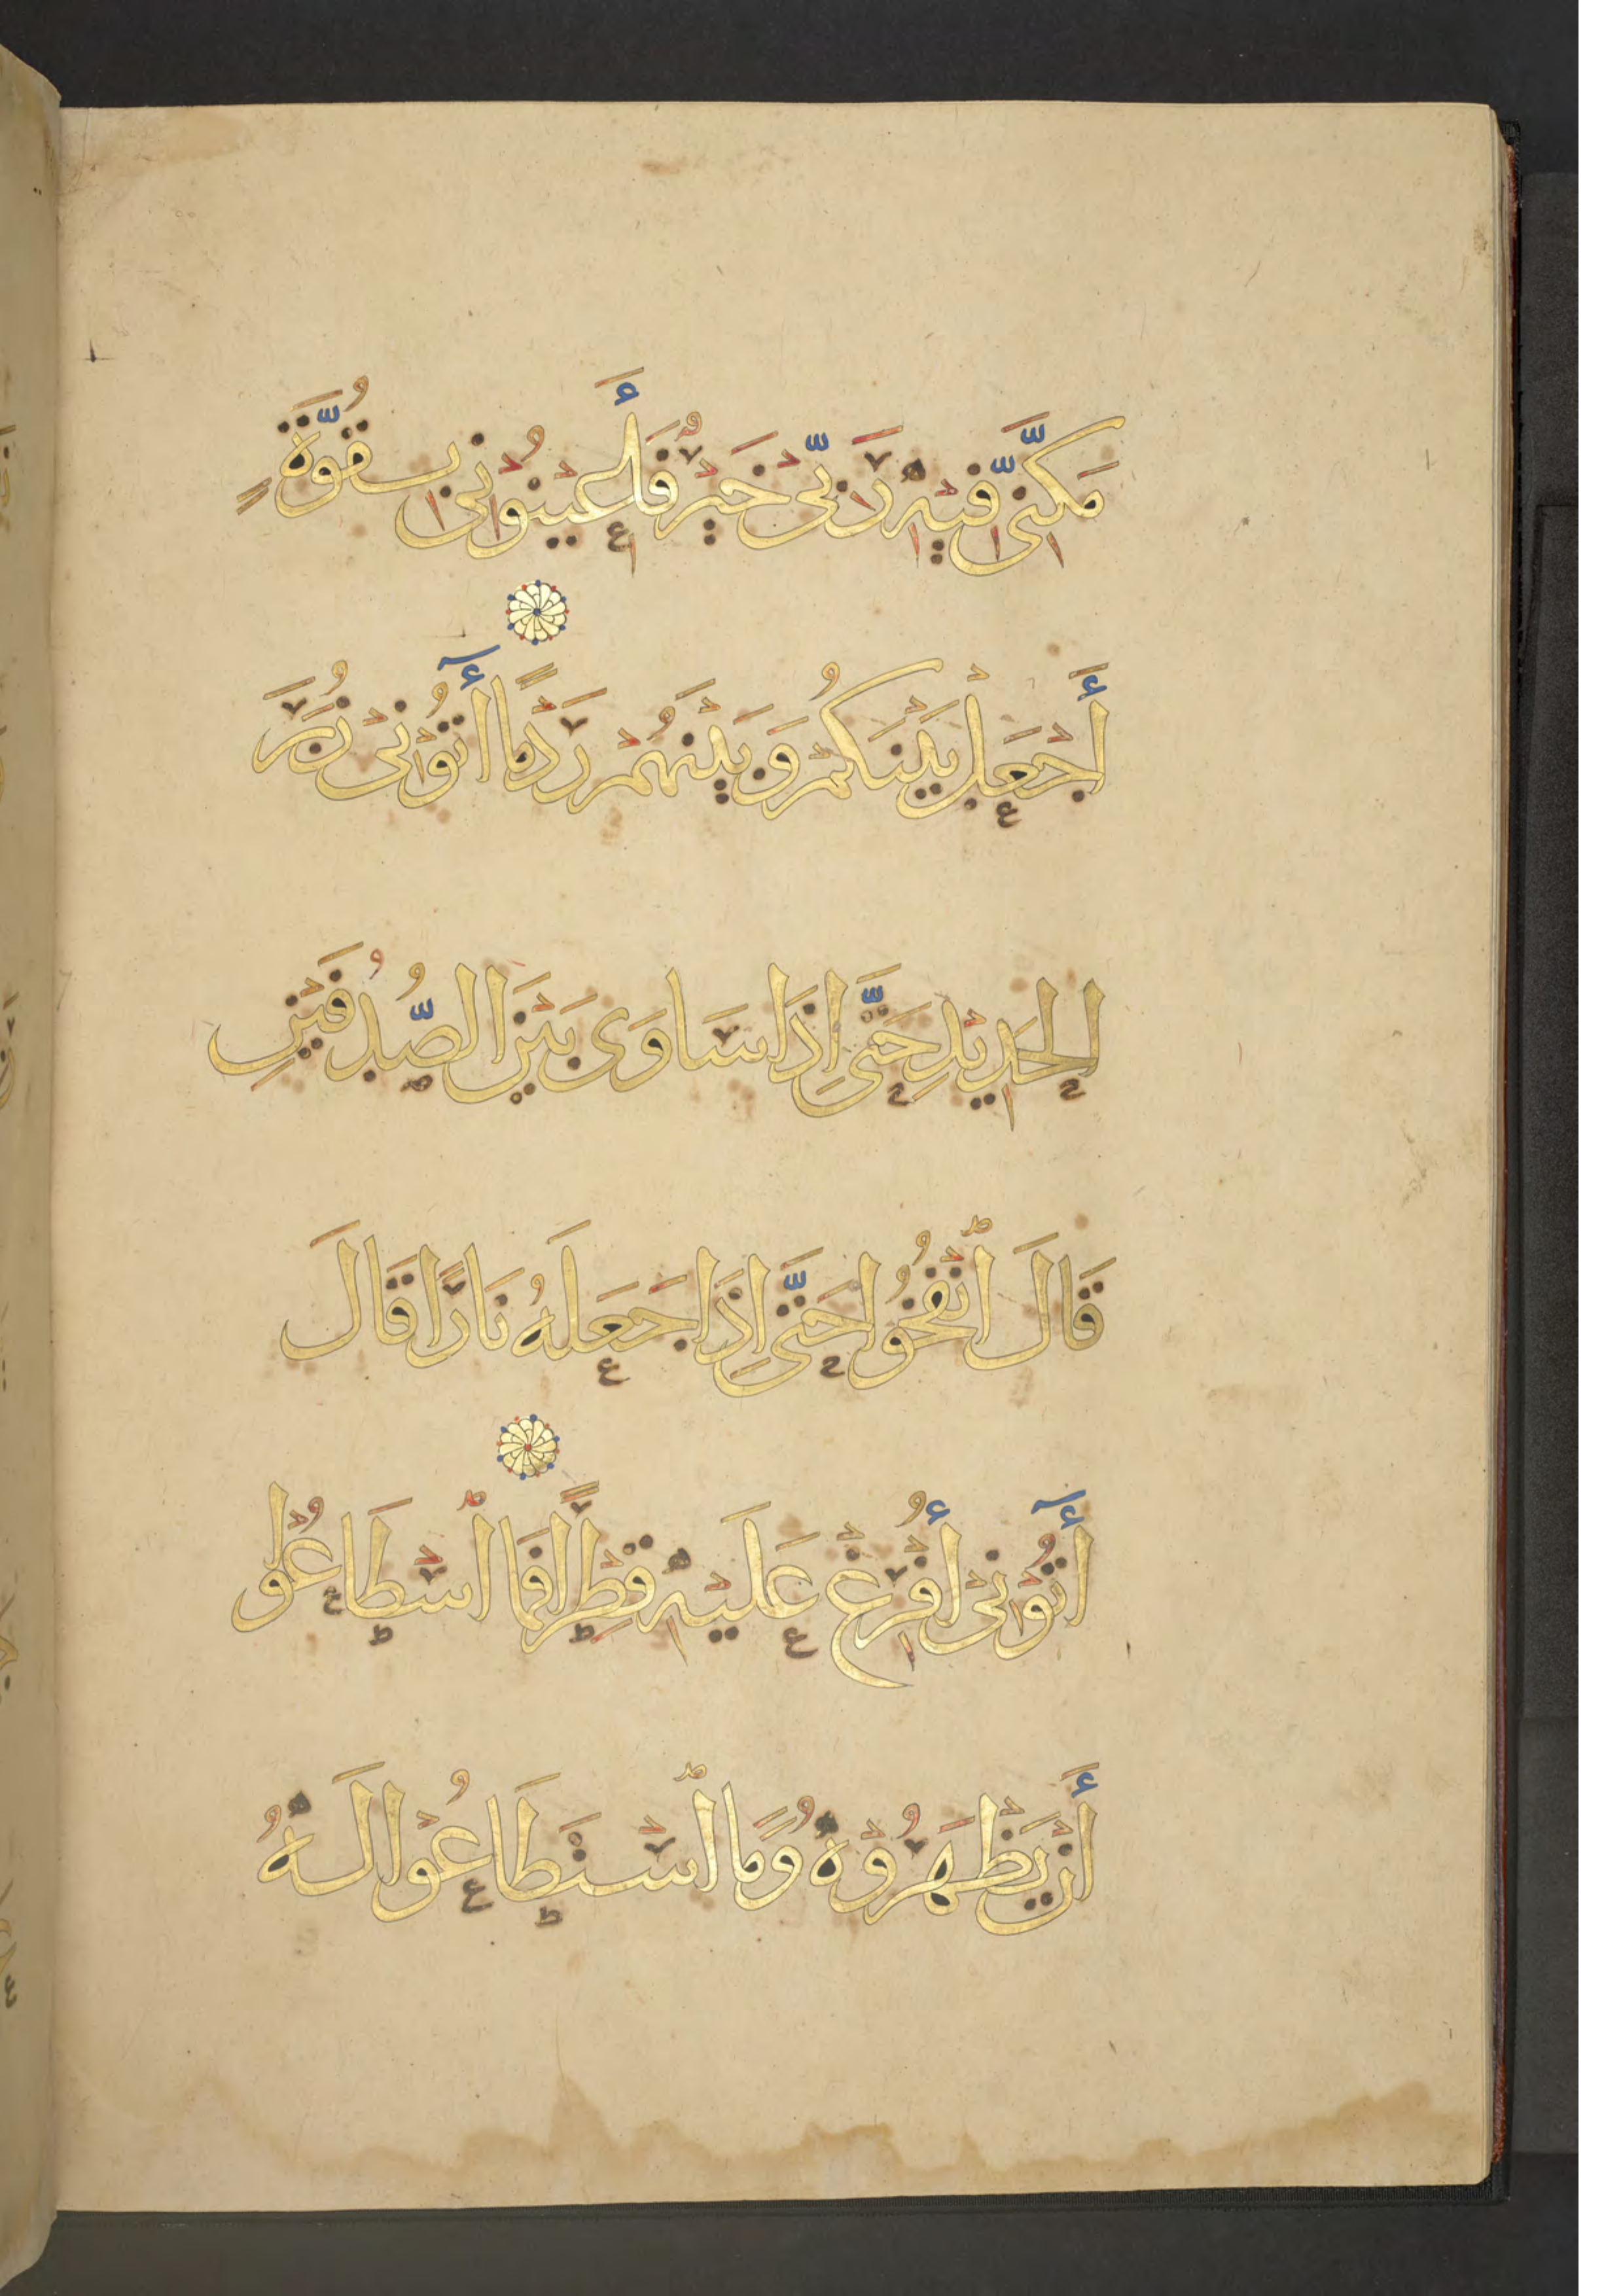 مَكَّنِّى فِيهِ رَبِّى خَيْرٌ فَأَعِينُونِى بِقُوَّةٍ
أَجْعَلْ بَيْنَكُمْ وَبَيْنَهُمْ رَدْمًا آتُونِى زُبَرَ
الْحَدِيدِ حَتَّى إِذَا سَاوَى بَيْنَ الصُّدُفَيْنِ
قَالَ ٱنْفُخُوا حَتَّى إِذَا جَعَلَهُ نَارًا قَالَ
آتُونِى أُفْرِغْ عَلَيْهِ قِطْرًا فَمَا ٱسْطَاعُوا
أَنْ يَظْهَرُوهُ وَمَا ٱسْتَطَاعُوا لَهُ